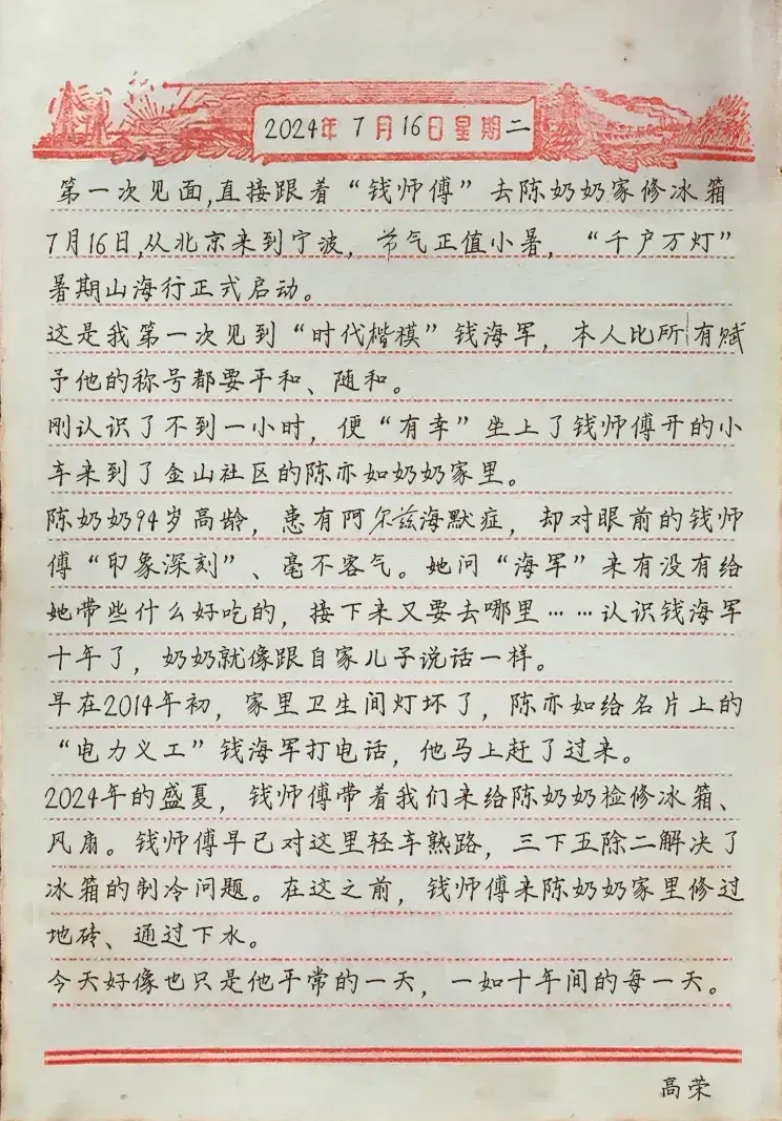 2024年 7月16日星期二
第一次见面,直接跟着“钱师傅”去陈奶奶家修冰箱
7月16日,从北京来到宁波，节气正值小暑，“千户万灯”
暑期山海行正式启动。
这是我第一次见到“时代楷模”钱海军，本人比所有赋
予他的称号都要平和、随和。
刚认识了不到一小时，便“有幸”坐上了钱师傅开的小
车来到了金山社区的陈亦如奶奶家里。
陈奶奶94岁高龄，患有阿尔兹海默症，却对眼前的钱师
傅“印象深刻”、毫不客气。她问“海军”来有没有给
她带些什么好吃的，接下来又要去哪里……认识钱海军
十年了，奶奶就像跟自家儿子说话一样。
早在2014年初，家里卫生间灯坏了，陈亦如给名片上的
“电力义工”钱海军打电话，他马上赶了过来。
2024年的盛夏，钱师傅带着我们来给陈奶奶检修冰箱、
风扇。钱师傅早已对这里轻车熟路，三下五除二解决了
冰箱的制冷问题。在这之前，钱师傅来陈奶奶家里修过
地砖、通过下水。
今天好像也只是他平常的一天，一如十年间的每一天。
高荣